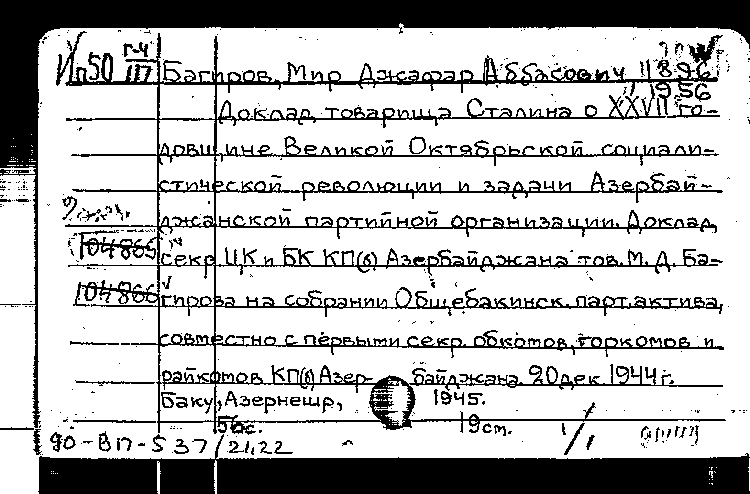 Ип50 г-4/117 Багиров, Мир Джафар Аббасович 1896
1956
Доклад товарища Сталина о XXVII го-
довщине Великой Октябрьской социали-
стической революции и задачи Азербай-
джанской партийной организации. Доклад
104865 секр. ЦК и БК КП(б) Азербайджана тов. М. Д. Ба-
104866 гирова на собрании Общебакинск. парт. актива,
совместно с первыми секр. обкомов, горкомов и
райкомов КП(б) Азер- байджана. 20 дек. 1944 г.
Баку, Азернешр, 1945.
56 с. 19 см.
90-ВП-537/21,22 1/1